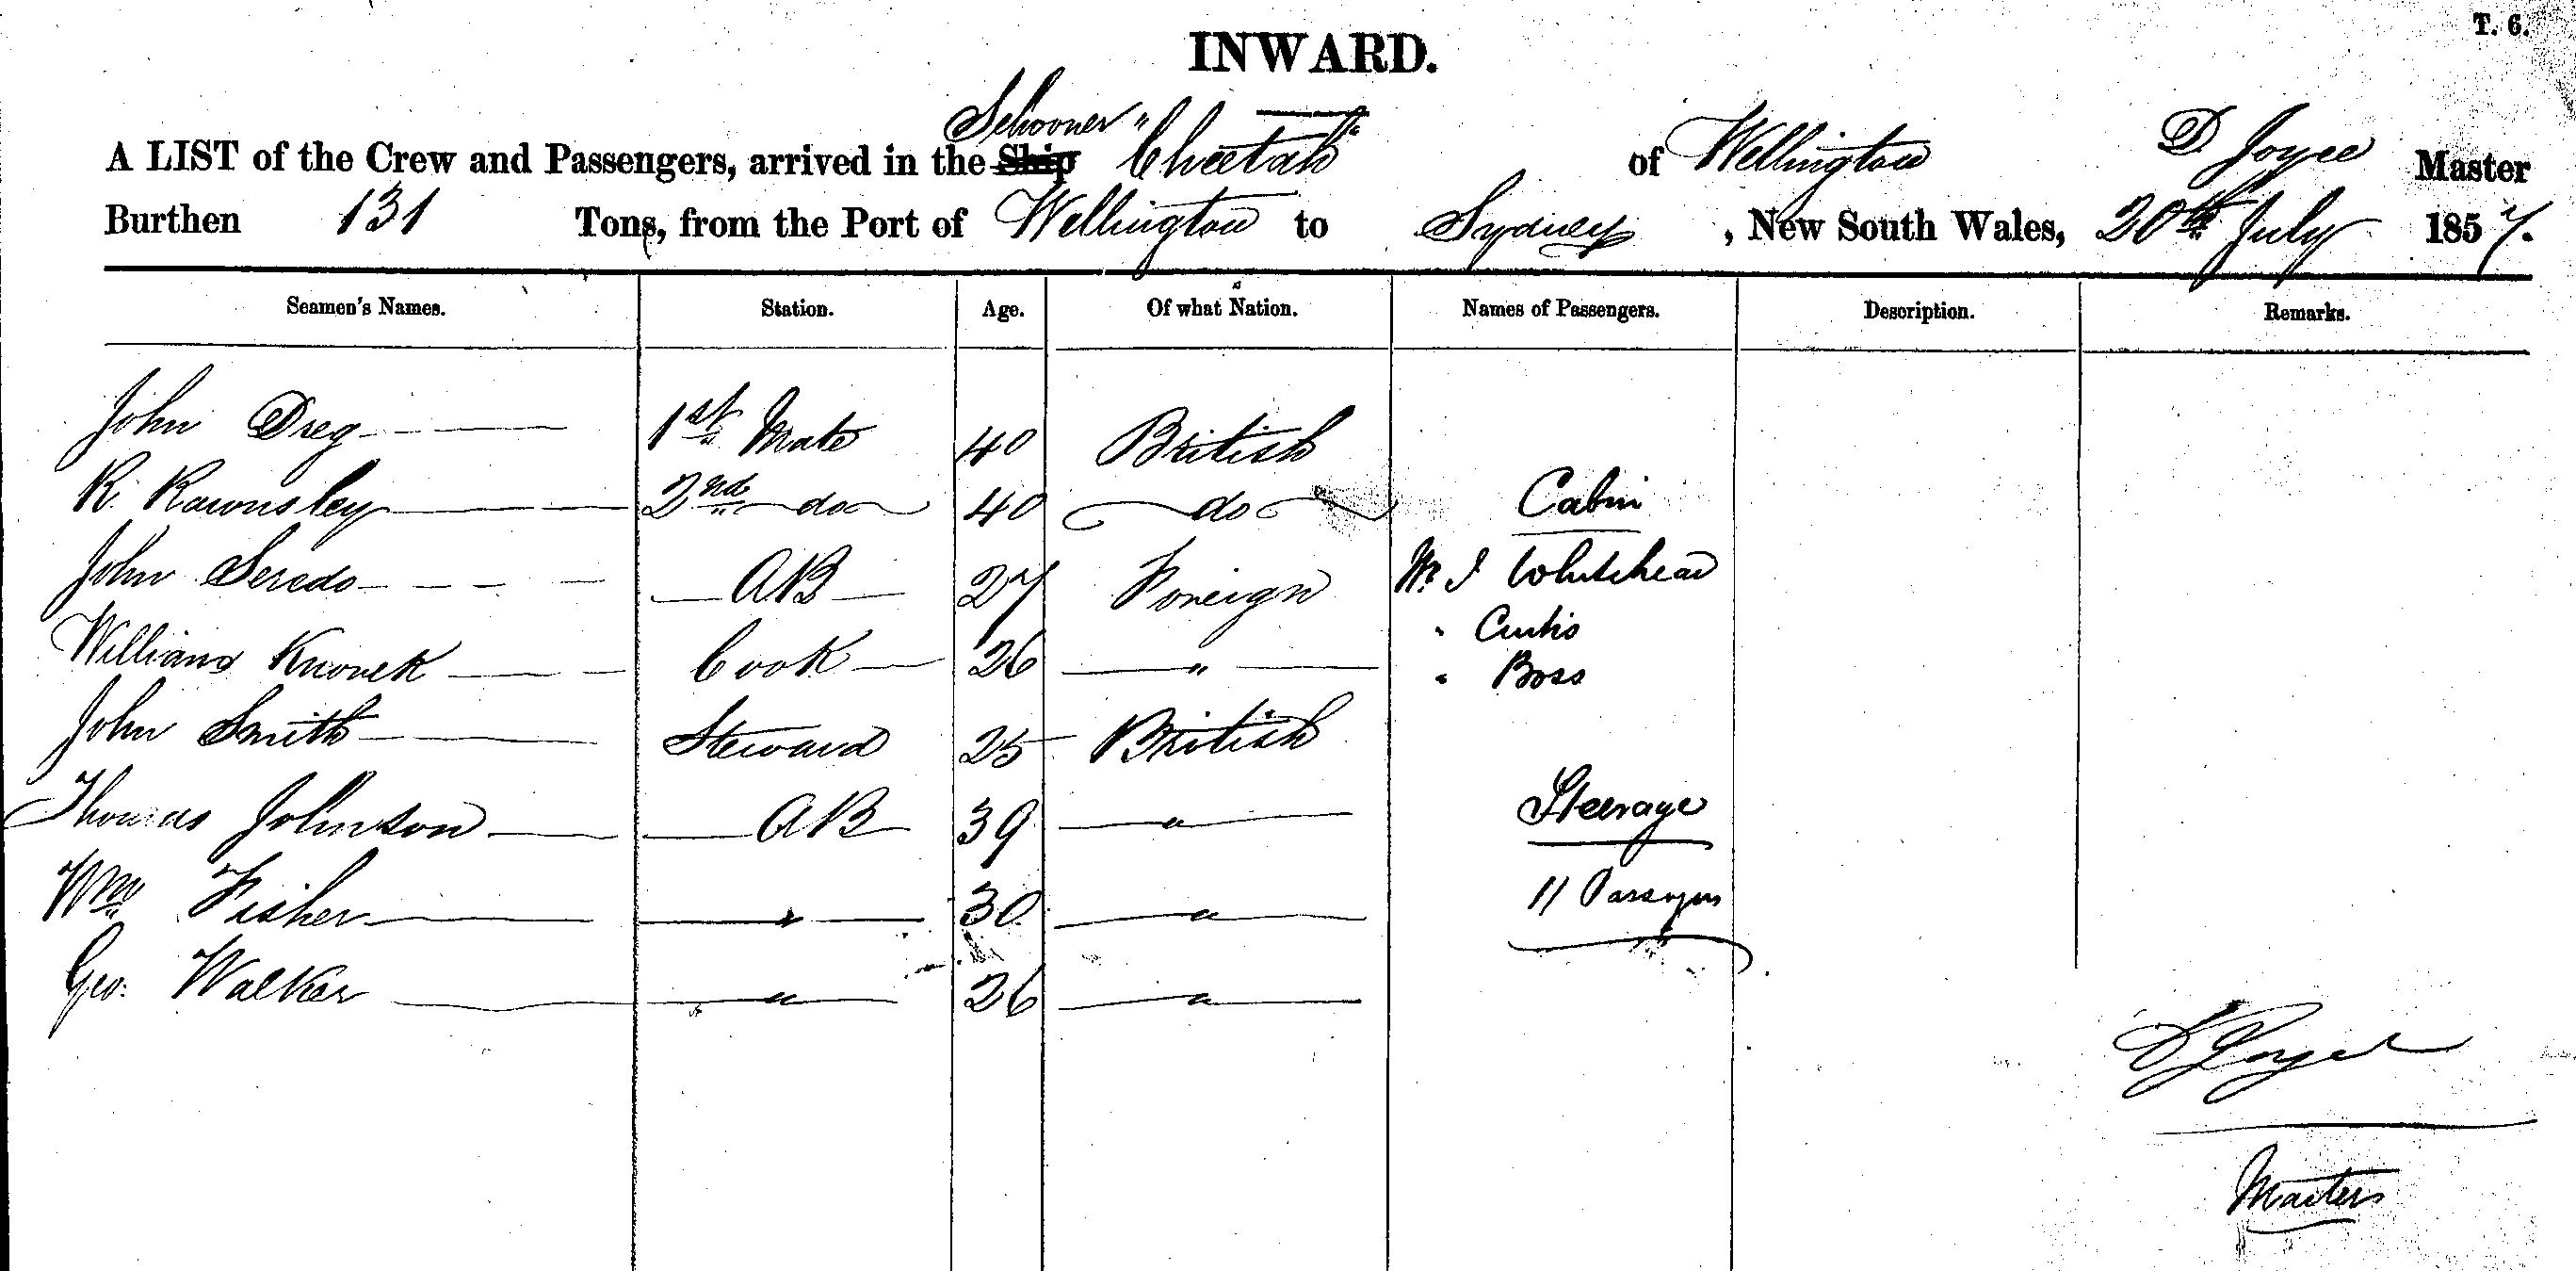 T. 6.
INWARD.
Schooner
A LIST of the Crew and Passengers, arrived in the Ship "Cheetah" of Wellington D Joyce Master
Burthen 131 Tons, from the Port of Wellington to Sydney, New South Wales, 20th July 1857.
Seamen's Names. Station. Age. Of what Nation. Names of Passengers. Description. Remarks.
John Dreg 1st Mate 40 British
R. Rawnsley 2nd do 40 do Cabin
John Seredo AB 27 Foreign Mr J Whitehead
William Knovek Cook 26 " " Curtis
" Boss
John Smith Steward 25 British
Thomas Johnson AB 39 " Steerage
Wm Fisher " 30 " 11 Passengers
Geo: Walker " 26 "
D Joyce
Master